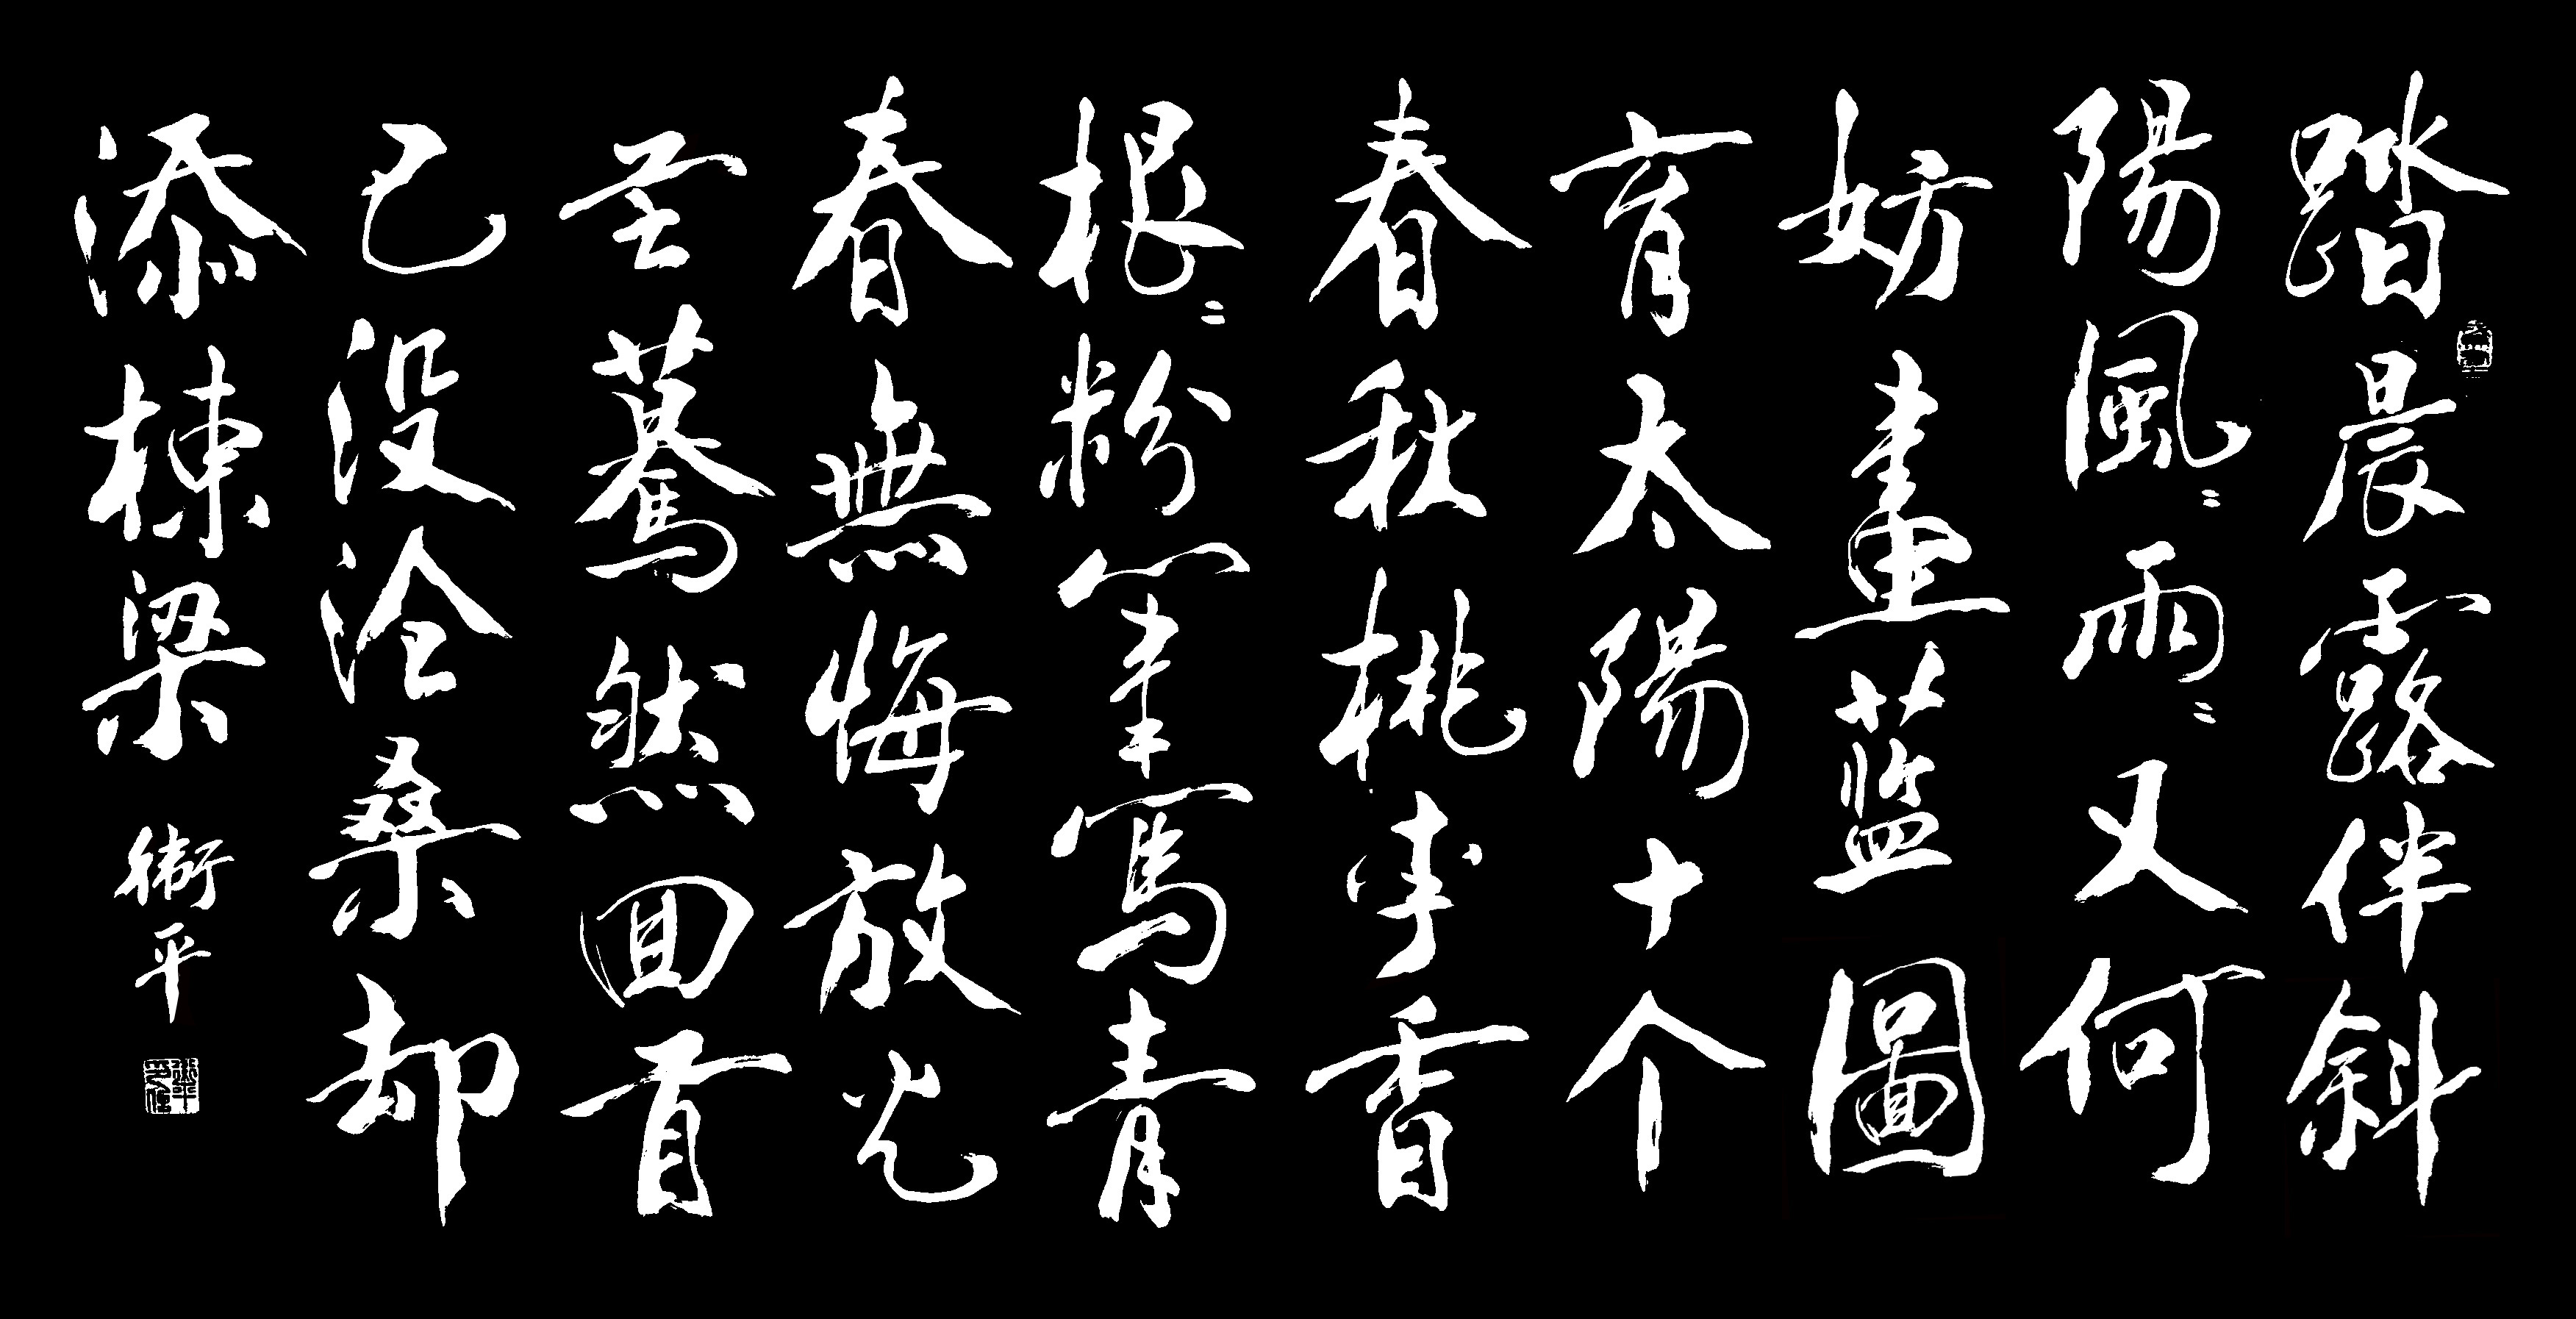 踏晨露伴斜
陽風々雨々又何
妨畫藍圖
育太陽十个
春秋桃李香
根々粉筆寫青
春無悔放光
芒驀然回首
已沒沧桑却
添棟梁
衛平